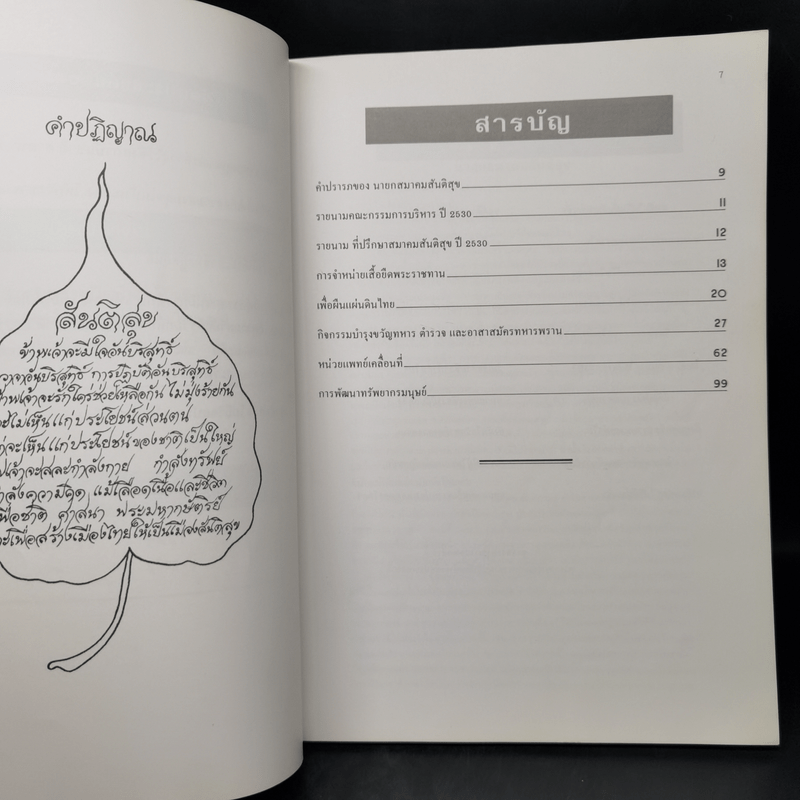 คำปฏิญาณ
สันติสุข
ข้าพเจ้าจะมีใจอันบริสุทธิ์
วาจาอันบริสุทธิ์ การปฏิบัติอันบริสุทธิ์
จะรักใคร่ช่วยเหลือกัน ไม่มุ่งร้ายกัน
ไม่เห็นแก่ประโยชน์ส่วนตน
จะเห็นแก่ประโยชน์ของชาติเป็นใหญ่
จะสละกำลังกาย กำลังทรัพย์
กำลังความคิด แม้เลือดเนื้อและชีวิต
เพื่อชาติ ศาสนา พระมหากษัตริย์
เพื่อสร้างเมืองไทยให้เป็นเมืองสันติสุข
7
สารบัญ
คำปรารภของ นายกสมาคมสันติสุข 9
รายนามคณะกรรมการบริหาร ปี 2530 11
รายนาม ที่ปรึกษาสมาคมสันติสุข ปี 2530 12
การจำหน่ายเสื้อยืดพระราชทาน 13
เพื่อผืนแผ่นดินไทย 20
กิจกรรมบำรุงขวัญทหาร ตำรวจ และอาสาสมัครทหารพราน 27
หน่วยแพทย์เคลื่อนที่ 62
การพัฒนาทรัพยากรมนุษย์ 99